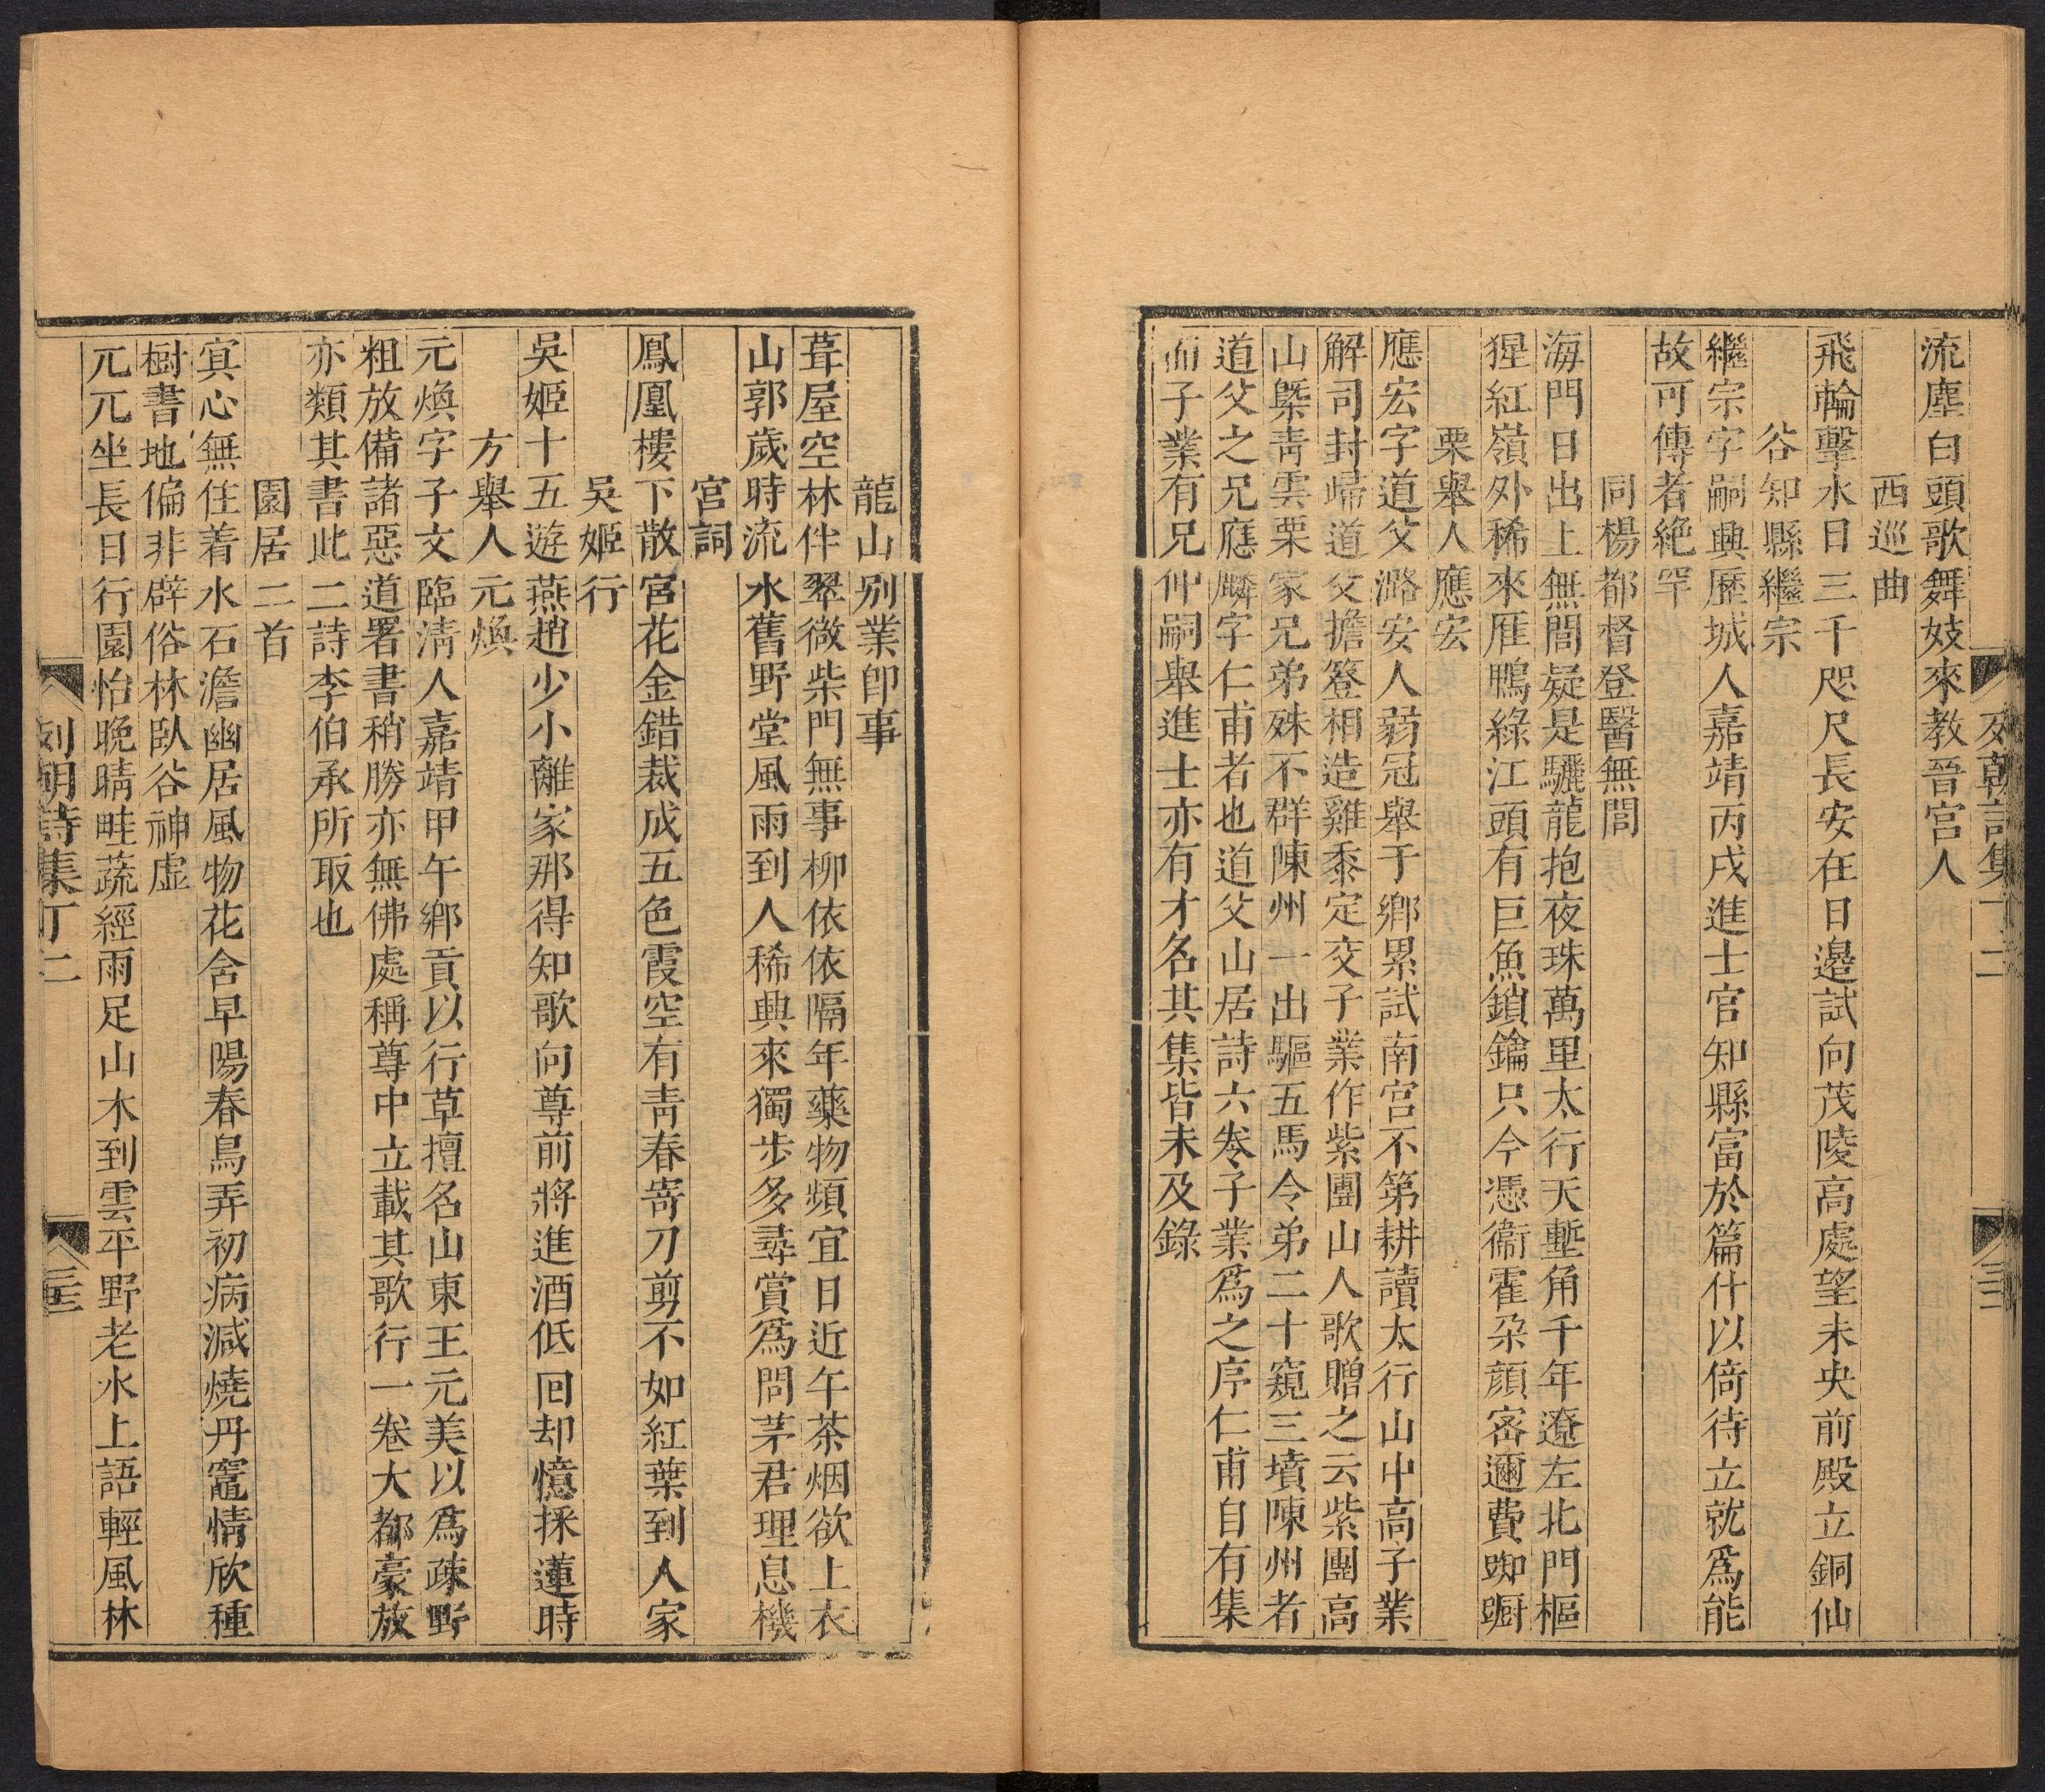 流塵白頭歌舞妓來教晉宮人
西巡曲
飛輪擊水日三千咫尺長安在日邊試向茂陵高處望未央前殿立銅仙
谷知縣繼宗
繼宗字嗣興歷城人嘉靖丙戌進士官知縣富於篇什以倚待立就爲能
故可傳者絶罕
同楊都督登醫無閭
海門日出上無閭疑是驪龍抱夜珠萬里太行天塹角千年遼左北門樞
猩紅嶺外稀來雁鴨綠江頭有巨魚鎖鑰只今憑衞霍朶顔密邇費踟躕
栗舉人應宏
應宏字道父潞安人弱冠舉于鄉累試南宮不第耕讀太行山中高子業
解司封歸道父擔簦相造雞黍定交子業作紫團山人歌贈之云紫團高
山槩靑雲栗家兄弟殊不群陳州一出驅五馬令弟二十窺三墳陳州者
道父之兄應麟字仁甫者也道父山居詩六卷子業爲之序仁甫自有集
而子業有兄仲嗣舉進士亦有才名其集皆未及錄
龍山別業卽事
葺屋空林伴翠微柴門無事柳依依隔年藥物頻宜日近午茶烟欲上衣
山郭歲時流水舊野堂風雨到人稀興來獨步多尋賞爲問茅君理息機
宮詞
鳳凰樓下散宮花金錯裁成五色霞空有靑春寄刀剪不如紅葉到人家
吳姬行
吳姬十五遊燕趙少小離家那得知歌向尊前將進酒低回却憶採蓮時
方舉人元煥
元煥字子文臨淸人嘉靖甲午鄉貢以行草擅名山東王元美以爲疎野
粗放備諸惡道署書稍勝亦無佛處稱尊中立載其歌行一卷大都豪放
亦類其書此二詩李伯承所取也
園居二首
寘心無住着水石澹幽居風物花舍早陽春鳥弄初病減燒丹竈情欣種
樹書地偏非辟俗林臥谷神虛
兀兀坐長日行園怡晚晴畦蔬經雨足山木到雲平野老水上語輕風林
列朝詩集丁二